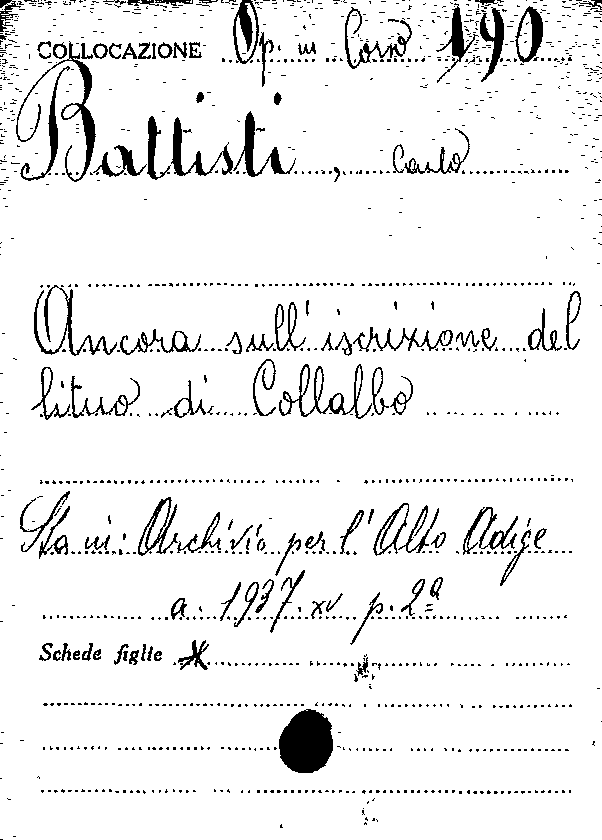 COLLOCAZIONE Op. in Corso 190
Battisti, Carlo
Ancora sull'iscrizione del
lituo di Collalbo
Sta in: Archivio per l'Alto Adige
a. 1937. XV p. 2ª
Schede figlie